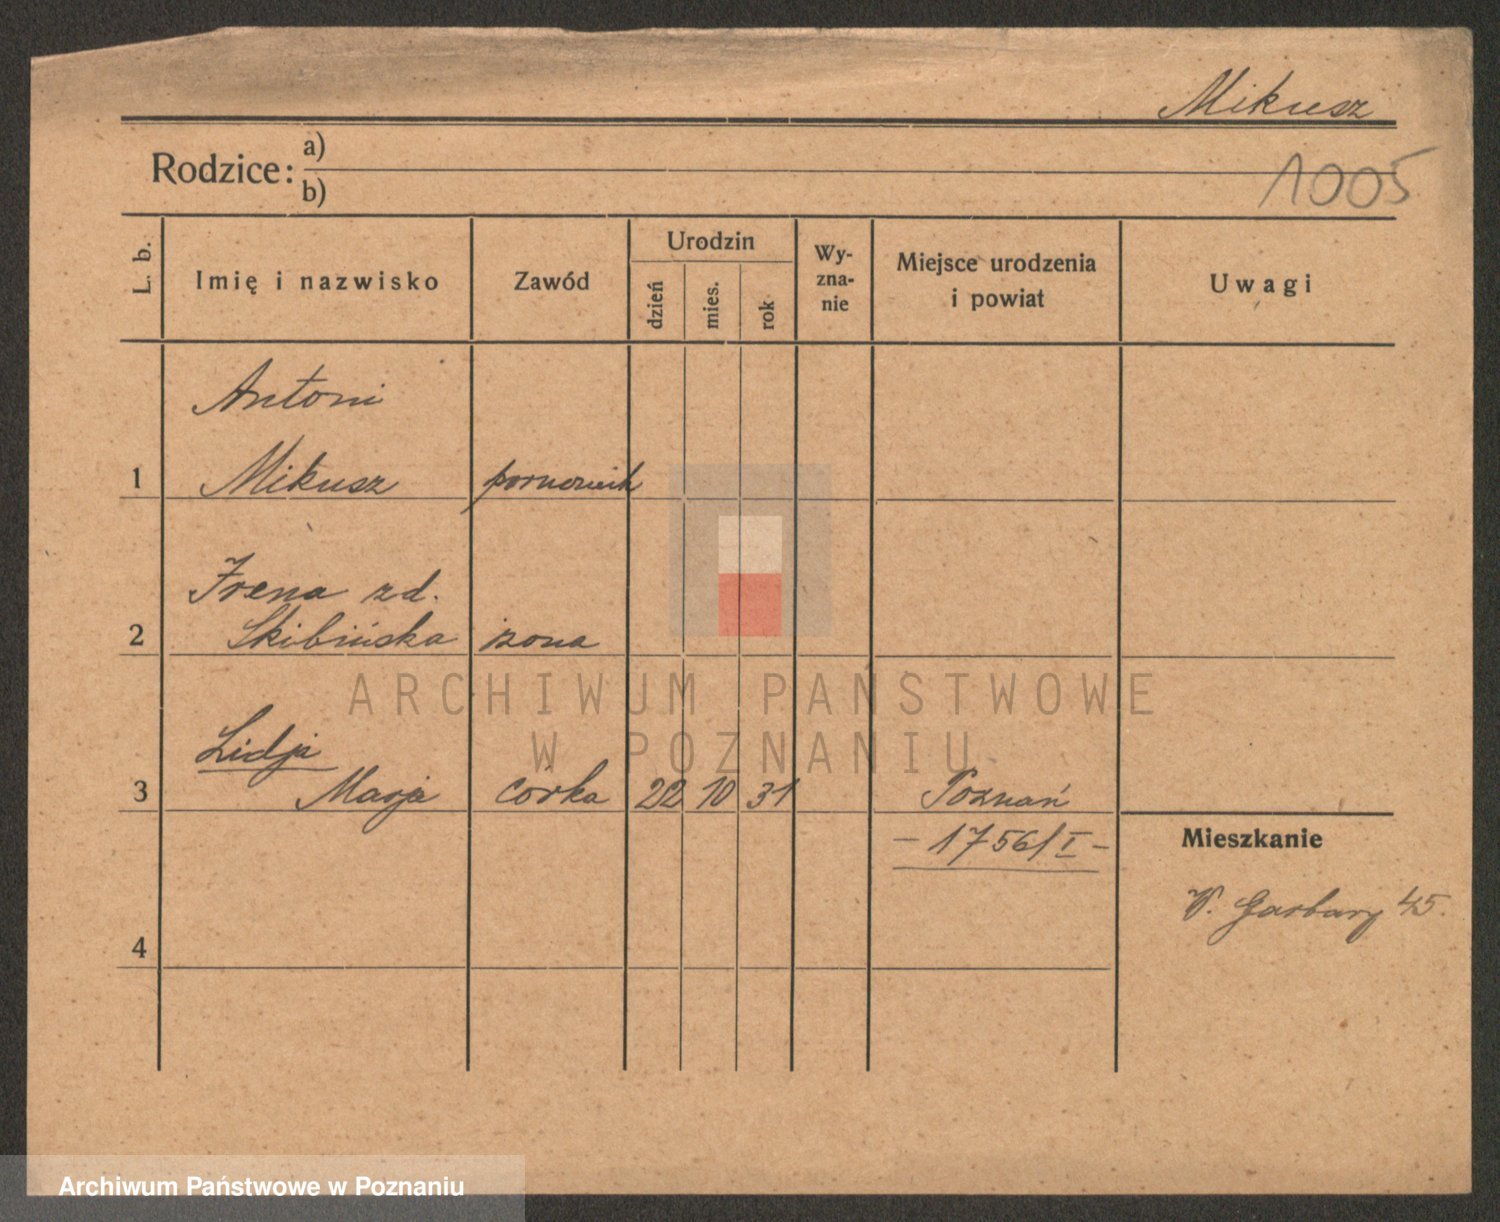 Mikusz
Rodzice: a)
b)
1005
L. b.
Imię i nazwisko
Zawód
Urodzin
dzień
mies.
rok
Wy-
zna-
nie
Miejsce urodzenia
i powiat
Uwagi
Antoni
1 Mikusz
Irena zd.
2 Skibińska żona
ARCHIWUM PAŃSTWOWE
W POZNANIU
Lidja
3 Marja córka 22 10 31 Poznań
- 1756/I -
Mieszkanie
W. Garbary 45.
4
Archiwum Państwowe w Poznaniu